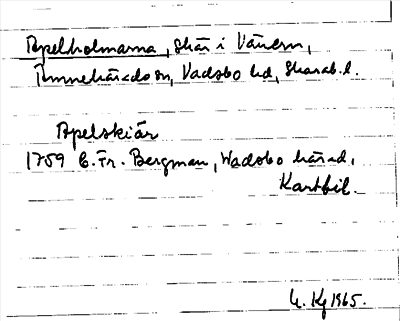 Apelholmarna, skär i Vänern,
Vadsbo hd, Skarab.l.
Apelskiär
1759 C. Fr. Bergman, Wadsbo härad,
Kartbil.
Kg 1965.